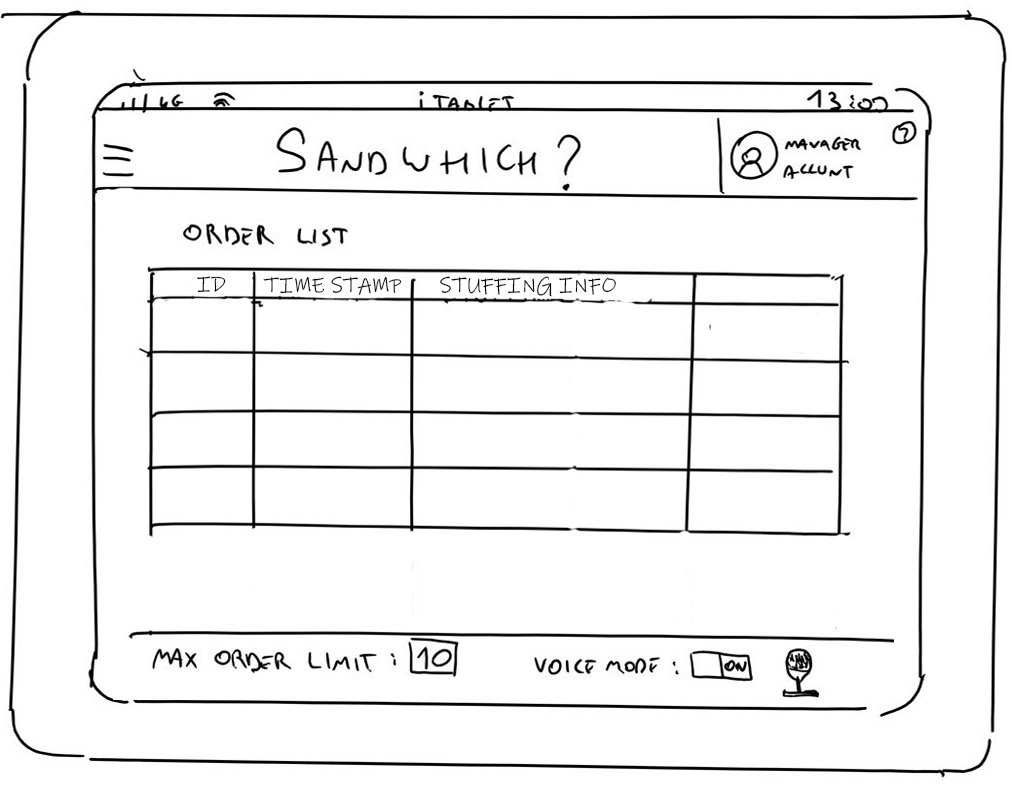 4G iTABLET 13:00
SANDWHICH?
MANAGER
ACCUNT
?
ORDER LIST
ID TIME STAMP STUFFING INFO
MAX ORDER LIMIT: 10 VOICE MODE: ON